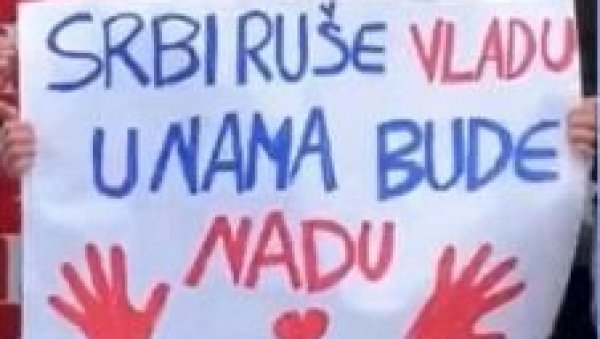 SRBI RUŠE VLADU
U NAMA BUDE
NADU